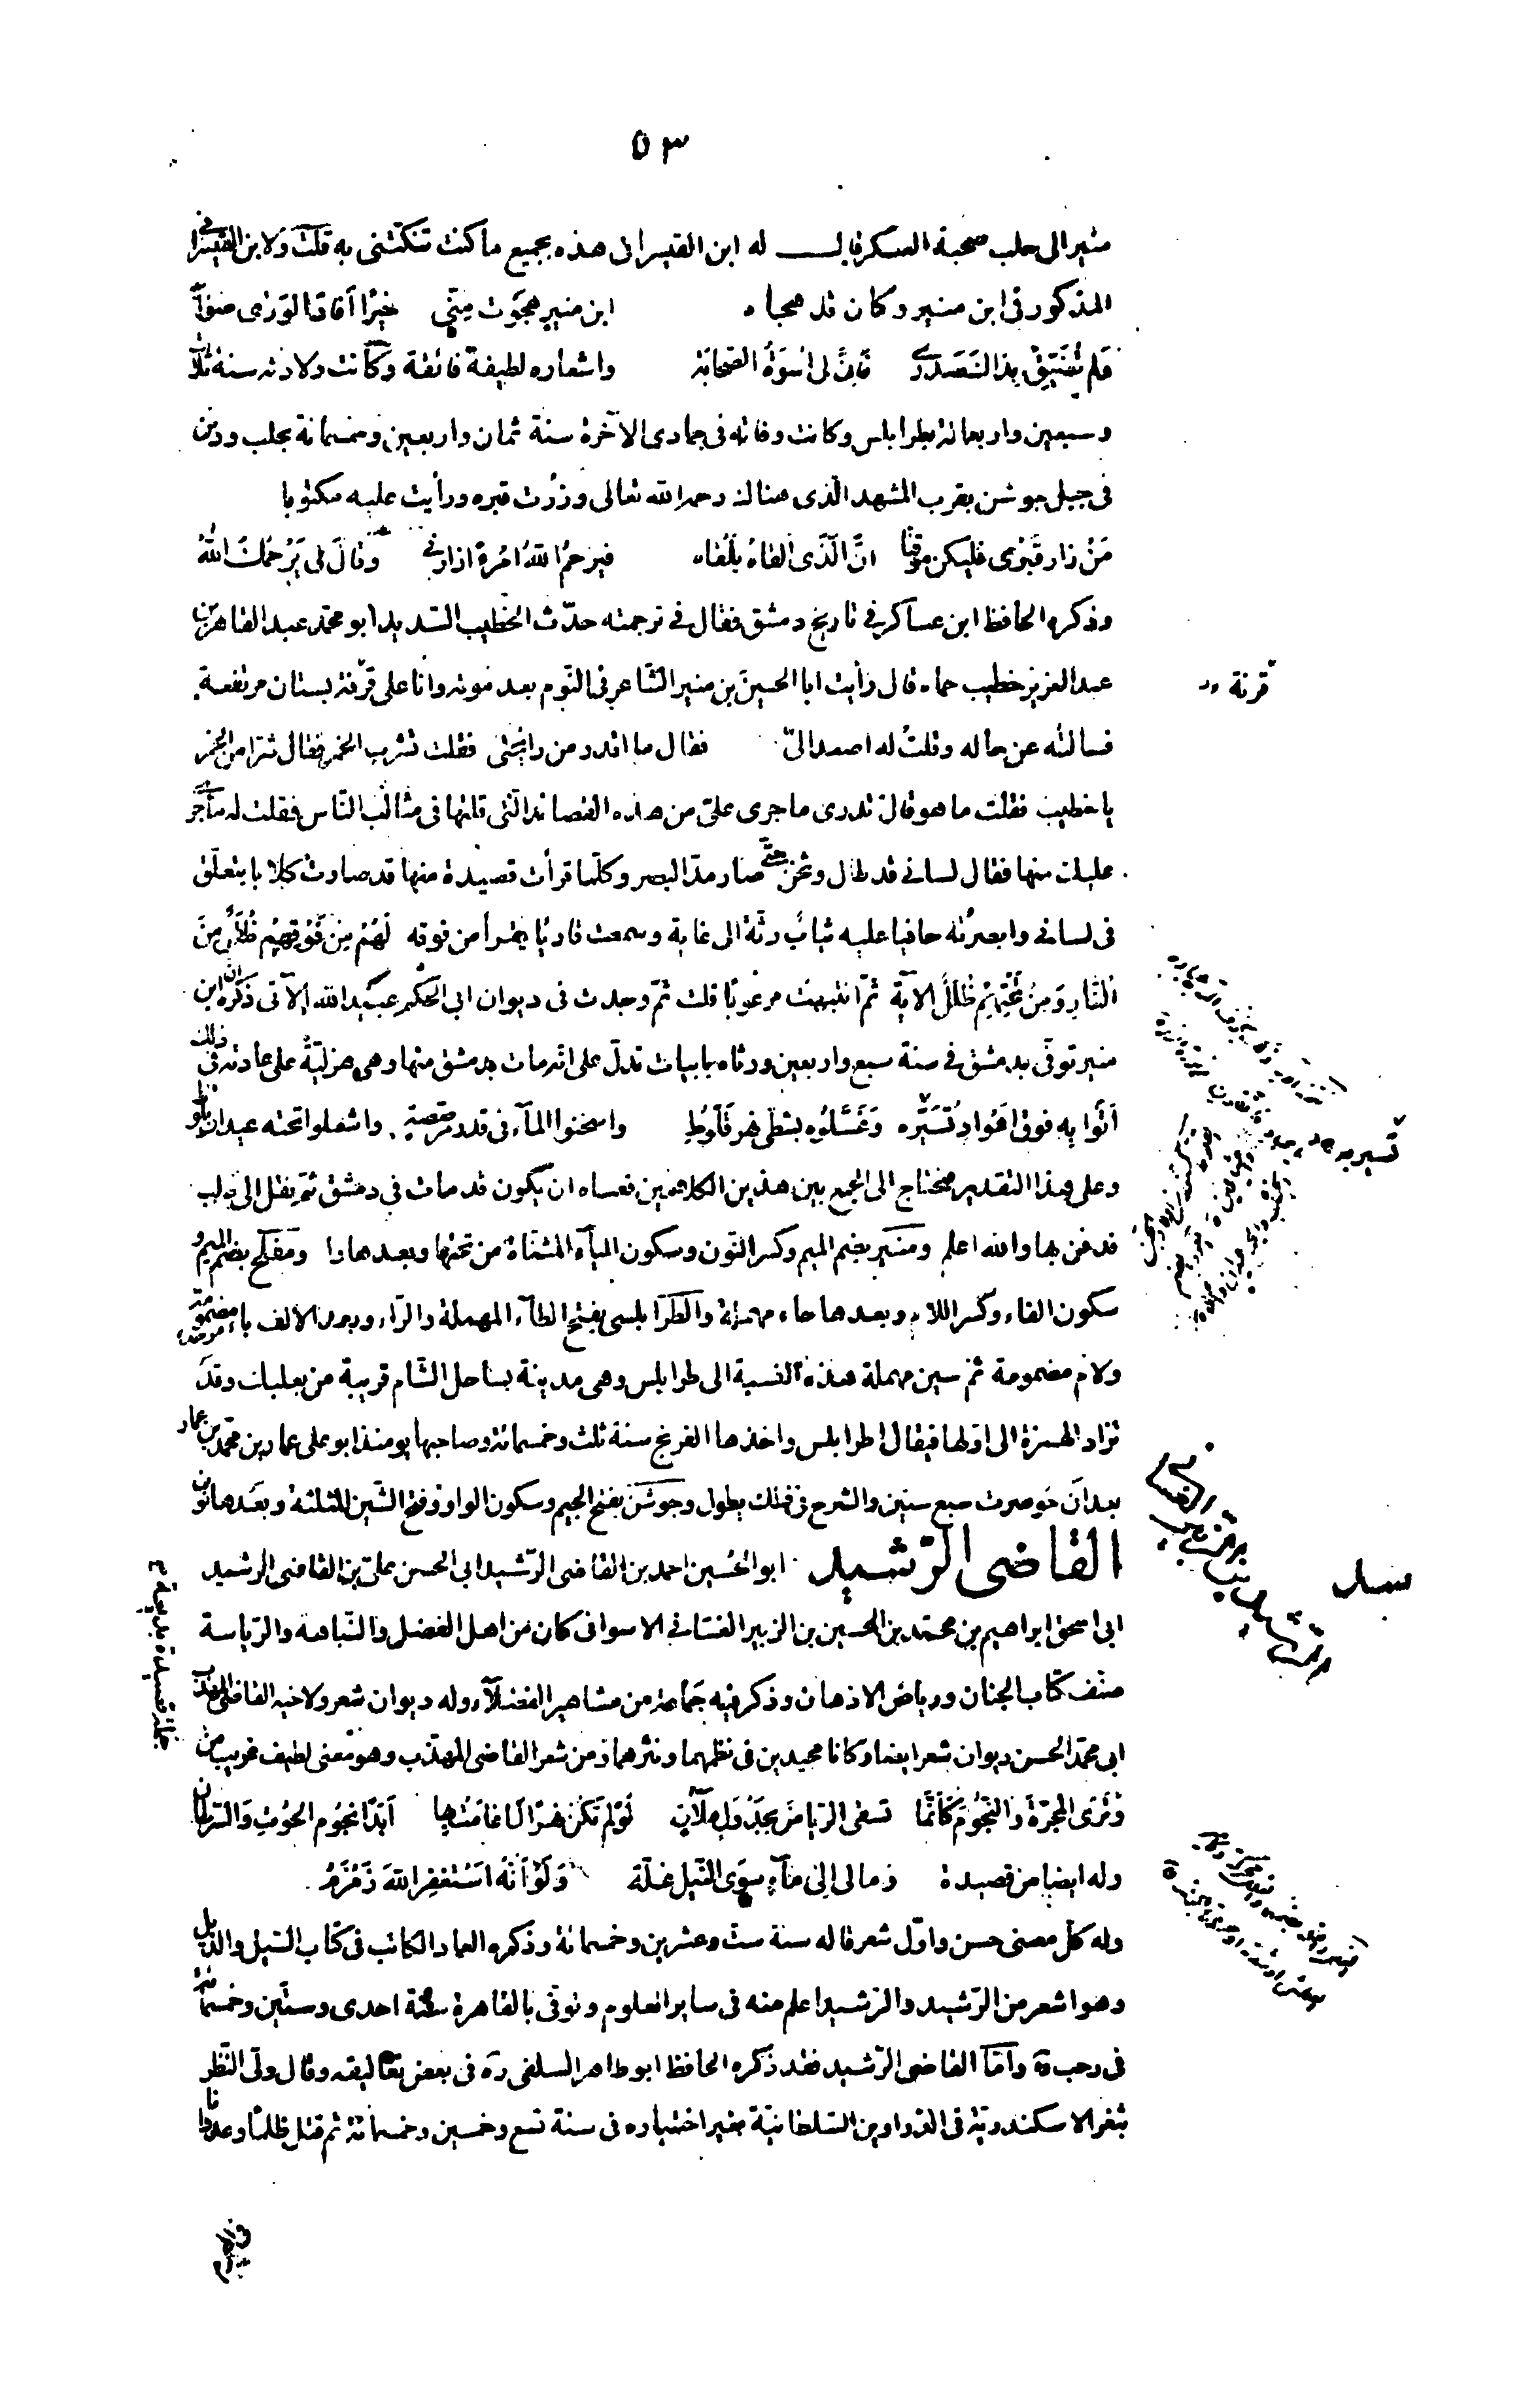 ٥٣
منير الى حلب صحبة العسكر قال له ابن القيسرانى هذه بجميع ما كنت تنكتنى به قلت ولابن القيسرانى
المذكور فى ابن منير وكان قد هجاه ابن منير هجوت منى خيرا افاد الورى صوابه
ولم تضيق بذاك صدرى فان لى اسوة الصحابة واشعاره لطيفة فائقة وكانت ولادته سنة ثلاث
وسبعين واربعمائة بطرابلس وكانت وفاته فى جمادى الآخرة سنة ثمان واربعين وخمسمائة بحلب ودفن
فى جبل جوشن بقرب المشهد الذى هناك رحمه الله تعالى وزرت قبره ورأيت عليه مكتوبا
من زار قبرى فليكن موقنا ان الذى القاه يلقاه فيرحم الله امرءا زارنى وقال لى يرحمك الله
وذكره الحافظ ابن عساكر فى تاريخ دمشق فقال فى ترجمته حدّث الخطيب السديد ابو محمد عبد القاهر بن
عبد العزيز خطيب حماه قال رأيت ابا الحسين بن منير الشاعر فى النوم بعد موته وانا على قرنة بستان مرتفعة
قرنة
فسالته عن حاله وقلت له اصعد الىّ فقال ما اقدر من رائحتى فقلت تشرب الخمر فقال شرا من الخمر
يا خطيب فقلت ما هو قال تدرى ما جرى علىّ من هذه القصائد التى قلتها فى مثالب الناس فقلت له ما جرى
عليك منها فقال لسانى قد طال وثخن حتى صار مدّ البصر وكلما قرأت قصيدة منها قد صارت كلابا يتعلق
فى لسانى وابصرته حافيا عليه ثياب رثّة الى غاية وسمعت قارئا يقرأ من فوقه لهم من فوقهم ظلل من
النار ومن تحتهم ظلل الآية ثم انتبهت مرعوبا قلت ثم وجدت فى ديوان ابى الحكم عبيد الله الآتى ذكره ان ابن
منير توفّى بدمشق فى سنة سبع واربعين ورثاه بابيات تدلّ على انه مات بدمشق منها وهى هزلية على عادته فى ذلك
اتوا به فوق اعواد تسيّره وغسّلوه بشطى نهر قلوط واسخنوا الماء فى قدر مرصصة واشعلوا تحته عيدان بلوط
تسير به
وعلى هذا التقدير فيحتاج الى الجمع بين هذين الكلامين فعساه ان يكون قد مات فى دمشق ثم نقل الى حلب
فدفن بها والله اعلم ومنير بضم الميم وكسر النون وسكون الياء المثناة من تحتها وبعدها راء ومفلح بضم الميم و
سكون الفاء وكسر اللام وبعدها حاء مهملة والطرابلسى بفتح الطاء المهملة والراء وبعد الالف باء موحدة مضمومة
ولام مضمومة ثم سين مهملة هذه النسبة الى طرابلس وهى مدينة بساحل الشام قريبة من بعلبك وقد
تزاد الهمزة الى اولها فيقال اطرابلس واخذها الفرنج سنة ثلث وخمسمائة وصاحبها يومئذ ابو على عمار بن محمد بن عمار
بعد ان حوصرت سبع سنين والشرح فى ذلك يطول وجوشن بفتح الجيم وسكون الواو وفتح الشين المثلثة وبعدها نون
القاضى الرّشيد ابو الحسين احمد بن القاضى الرّشيد ابى الحسن علىّ بن القاضى الرشيد
ابى اسحق ابراهيم بن محمد بن الحسين بن الزبير الغسانى الاسوانى كان من اهل الفضل والنباهة والرياسة
صنّف كتاب الجنان ورياض الاذهان وذكر فيه جماعة من مشاهير الفضلاء وله ديوان شعر ولاخيه القاضى المهذب
ابى محمد الحسن ديوان شعر ايضا وكانا مجيدين فى نظمهما ونثرهما ومن شعر القاضى المهذب وهو معنى لطيف غريب من
وترى المجرّة والنجوم كانما تسقى الرياض بجدول ملآن لو لم تكن نهرا لما عامت بها ابدا نجوم الحوت والسرطان
وله ايضا من قصيدة وما لى الى ماء سوى النيل غلّة ولو انه استغفر الله زمزم
وله كلّ معنى حسن واوّل شعر قاله سنة ست وعشرين وخمسمائة وذكره العماد الكاتب فى كتاب السيل والذيل
وهو اشعر من الرّشيد والرّشيد اعلم منه فى ساير العلوم وتوفى بالقاهرة سنة احدى وستين وخمسمائة
فى رجب ره وامّا القاضى الرّشيد فقد ذكره الحافظ ابو طاهر السلفى ره فى بعض تعاليقه وقال ولّى النظر
بثغر الاسكندرية فى الدواوين السلطانية بغير اختياره فى سنة تسع وخمسين وخمسمائة ثم قتل ظلما وعدوانا